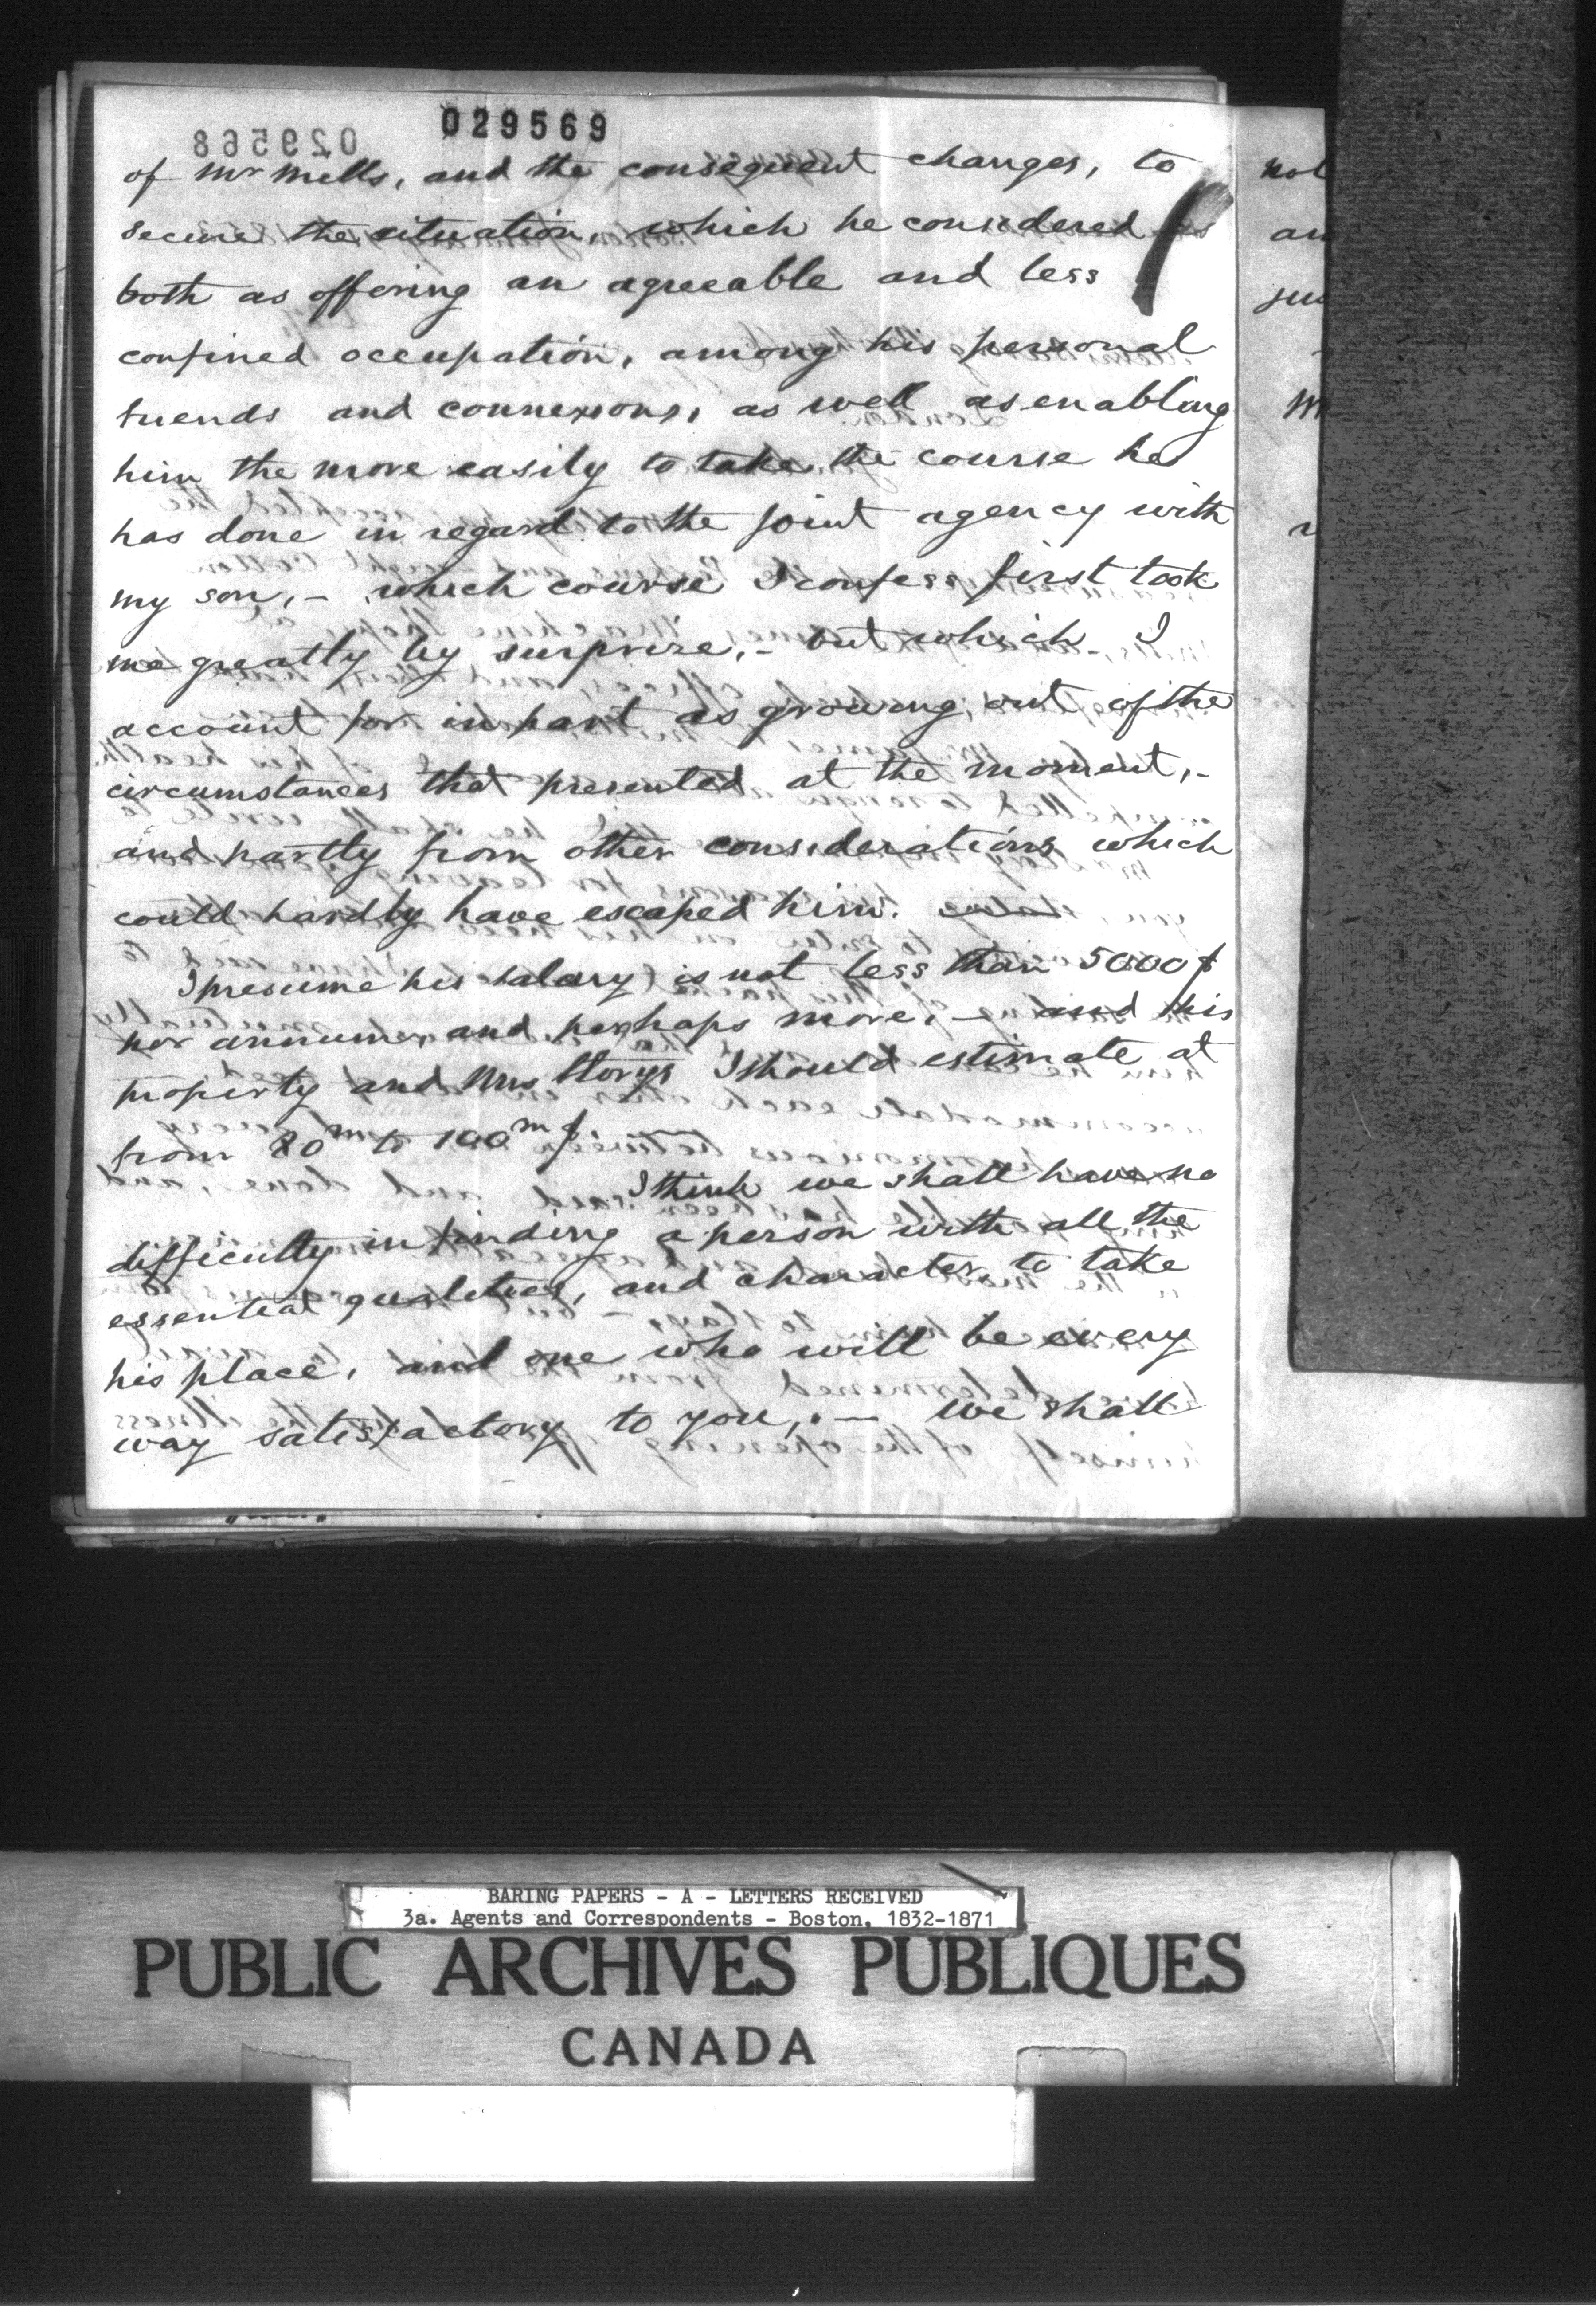 029569
029568
of Mr Mills, and the consequent changes, to
secure the situation, which he considered as
both as offering an agreeable and less
confined occupation, among his personal
friends and connexions, as well as enabling
him the more easily to take the course he
has done in regard to the joint agency with
my son, - which course I confess first took
me greatly by surprize, - but which I
account for in part as growing out of the
circumstances that presented at the moment, -
and partly from other considerations which
could hardly have escaped him.
I presume his salary is not less than 5000 $
per annum, and perhaps more, - and his
property and Mrs Storys I should estimate at
from 80m to 100m $.
I think we shall have no
difficulty in finding a person with all the
essential qualities, and character, to take
his place, and one who will be every
way satisfactory to you, . - we shall
not
BARING PAPERS - A - LETTERS RECEIVED
3a. Agents and Correspondents - Boston, 1832-1871
PUBLIC ARCHIVES PUBLIQUES
CANADA